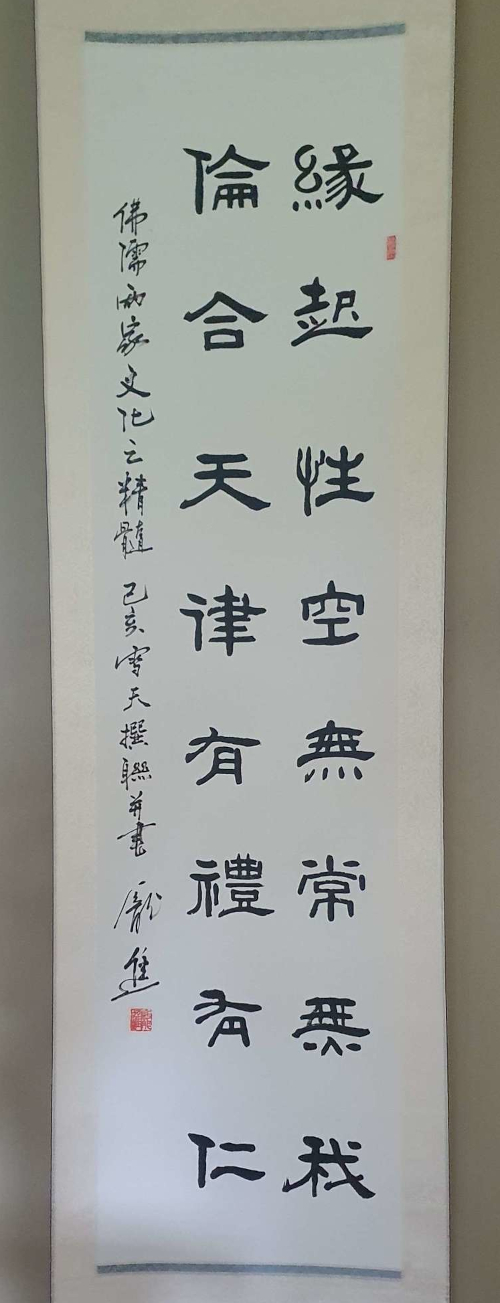 緣起性空無常無我
倫合天律有禮有仁
佛儒兩家文化之精髓 己亥雪天撰聯並書 龐進